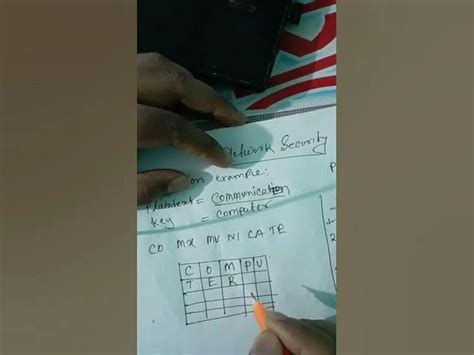 Network Security
example:
Plaintext = Communication
Key = Computer
CO MX MU NI CA TE
C O M P U
T E R